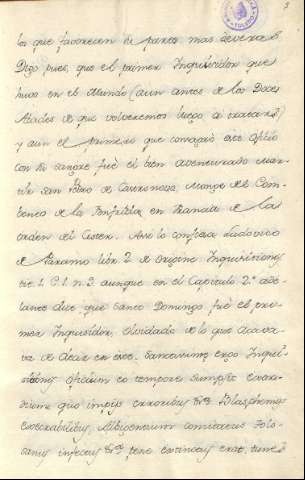 los que favorecen de partes mas severas
Digo pues, que el primer Inquisidor que
huvo en el Mundo (aun antes de los Doces
Abades de que volveremos luego a tratar)
y aun el primero que consagró este oficio
con su sangre fuè el bien aventurado Mar
tir san Pedro de Castronovo, Monge del Com
bento de la en Francia de la
orden del Cister. Assi lo confiesa Ludovico
de Paramo libr. 2 de Origine Inquisitionis
tit. 1. C. 1. n. 3. aunque en el Capitulo 2.º ade
lante dice, que Santo Domingo fuè el pri
mer Inquisidor, olvidado de lo que acava
va de decir en este. Sanctissimus ergo Inquisi
tionis oficium eo tempore sumpsit exor
dium quo impijs erroribus &ª blasphemijs
execrabilibus, Albigensium comitatus Tolo
sanus infectus &ª pene extinctus erat, tunc